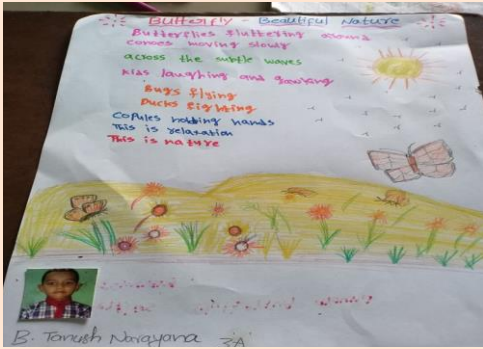 Butterfly - Beautiful Nature
Butterflies fluttering around
canoes moving slowly
across the subtle waves
Kids laughing and joking
Bugs flying
Ducks fighting
Copules holding hands
This is relaxation
This is nature
B. Tanush Narayana 3A